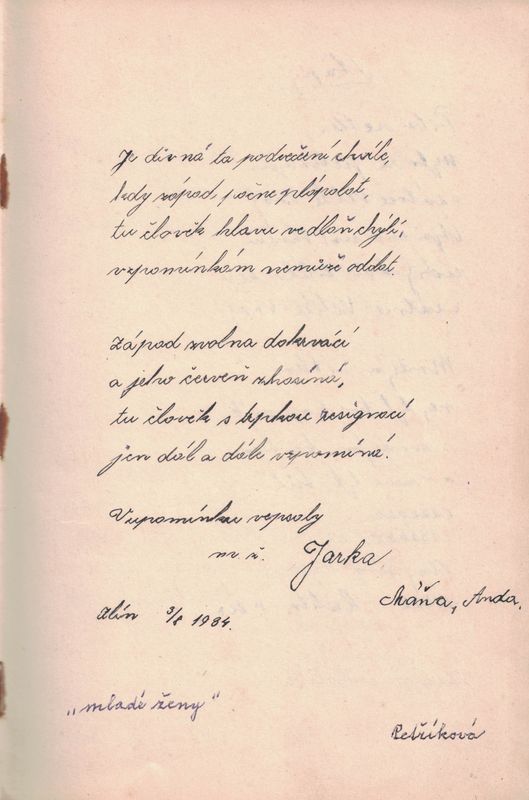 Je divná ta podvečení chvíle,
kdy západ počne plápolat,
tu člověk hlavu ve dlaň chýlí,
vzpomínkám nemůže oddat.
Západ zvolna dokrvácí
a jeho červeň zhasíná,
tu člověk s trpkou resignací
jen dál a dále vzpomíná.
Vzpomínku vepsaly
m. ž. Jarka
Máňa, Anda.
Zlín 3/8 1934.
"mladé ženy"
Petříková